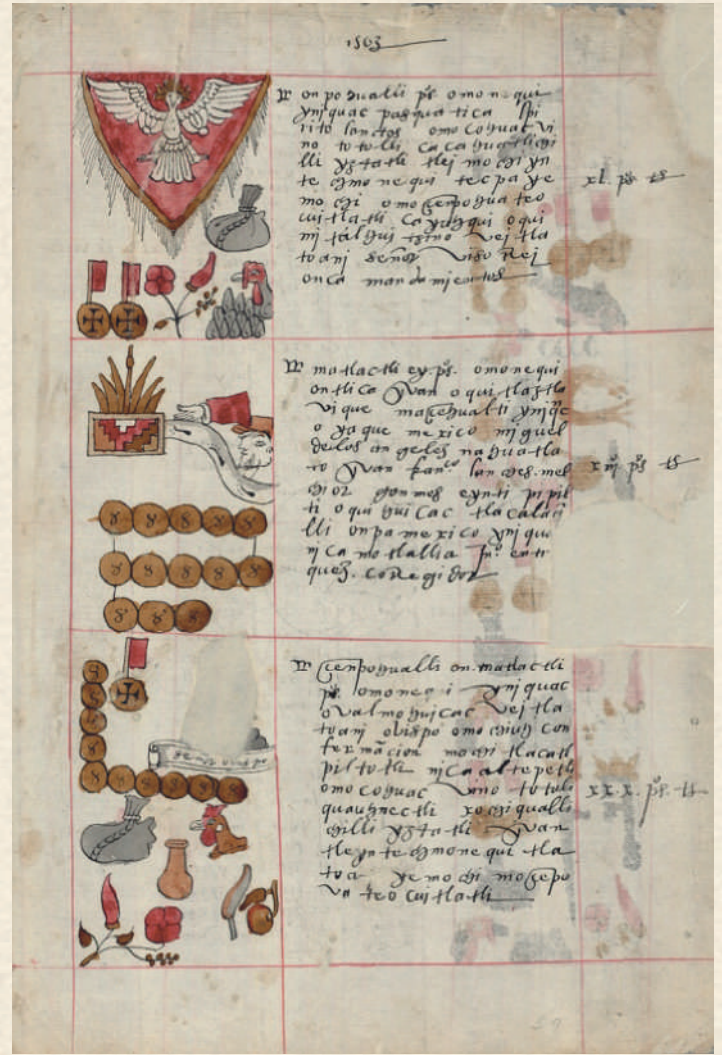 1563
onpohualli p̃s omonequi
yniquac pasquatica spi
rito sanctos omocohuac vi
no totolli cacahuatl chi
lli yztatli tlei mochi yn
techmonequi tecpa ye
mochi omocenpohua teo
cuitlatli
señor viso Rei
onca mandamientos
xl. p̃s ts
matlactli ey. p̃s. omonequi
ontlica yvan oquitlaxtla
vique macehualti yniq̃c
o yaque mexico miguel
de los angeles nahuatla
to yvan franco sanches. mel
chior gomes eynti pipil
ti o qui huicac tlacalaqui
lli onpa mexico yniqu
nica motlallia juo enri
quez. coRegidor
xiii. p̃s ts
8 8 8 8 8
8 8 8 8 8
8 8 8
cenpohualli on. matlactli
p̃s. omonequi yniquac
ovalmohuicac vei tla
toani obispo omochiuh con
firmacion mochi tlacatl
piltotli nica altepetl
omocohuac vino totoli
quauhnectli xochiqualli
chilli yztatli yvan
tleyn techmonequi tla
toa ye mochi mocepo
va teocuitlatli
xx.x. p̃s. ts
8
8
8
8
8 8 8 8 8 8